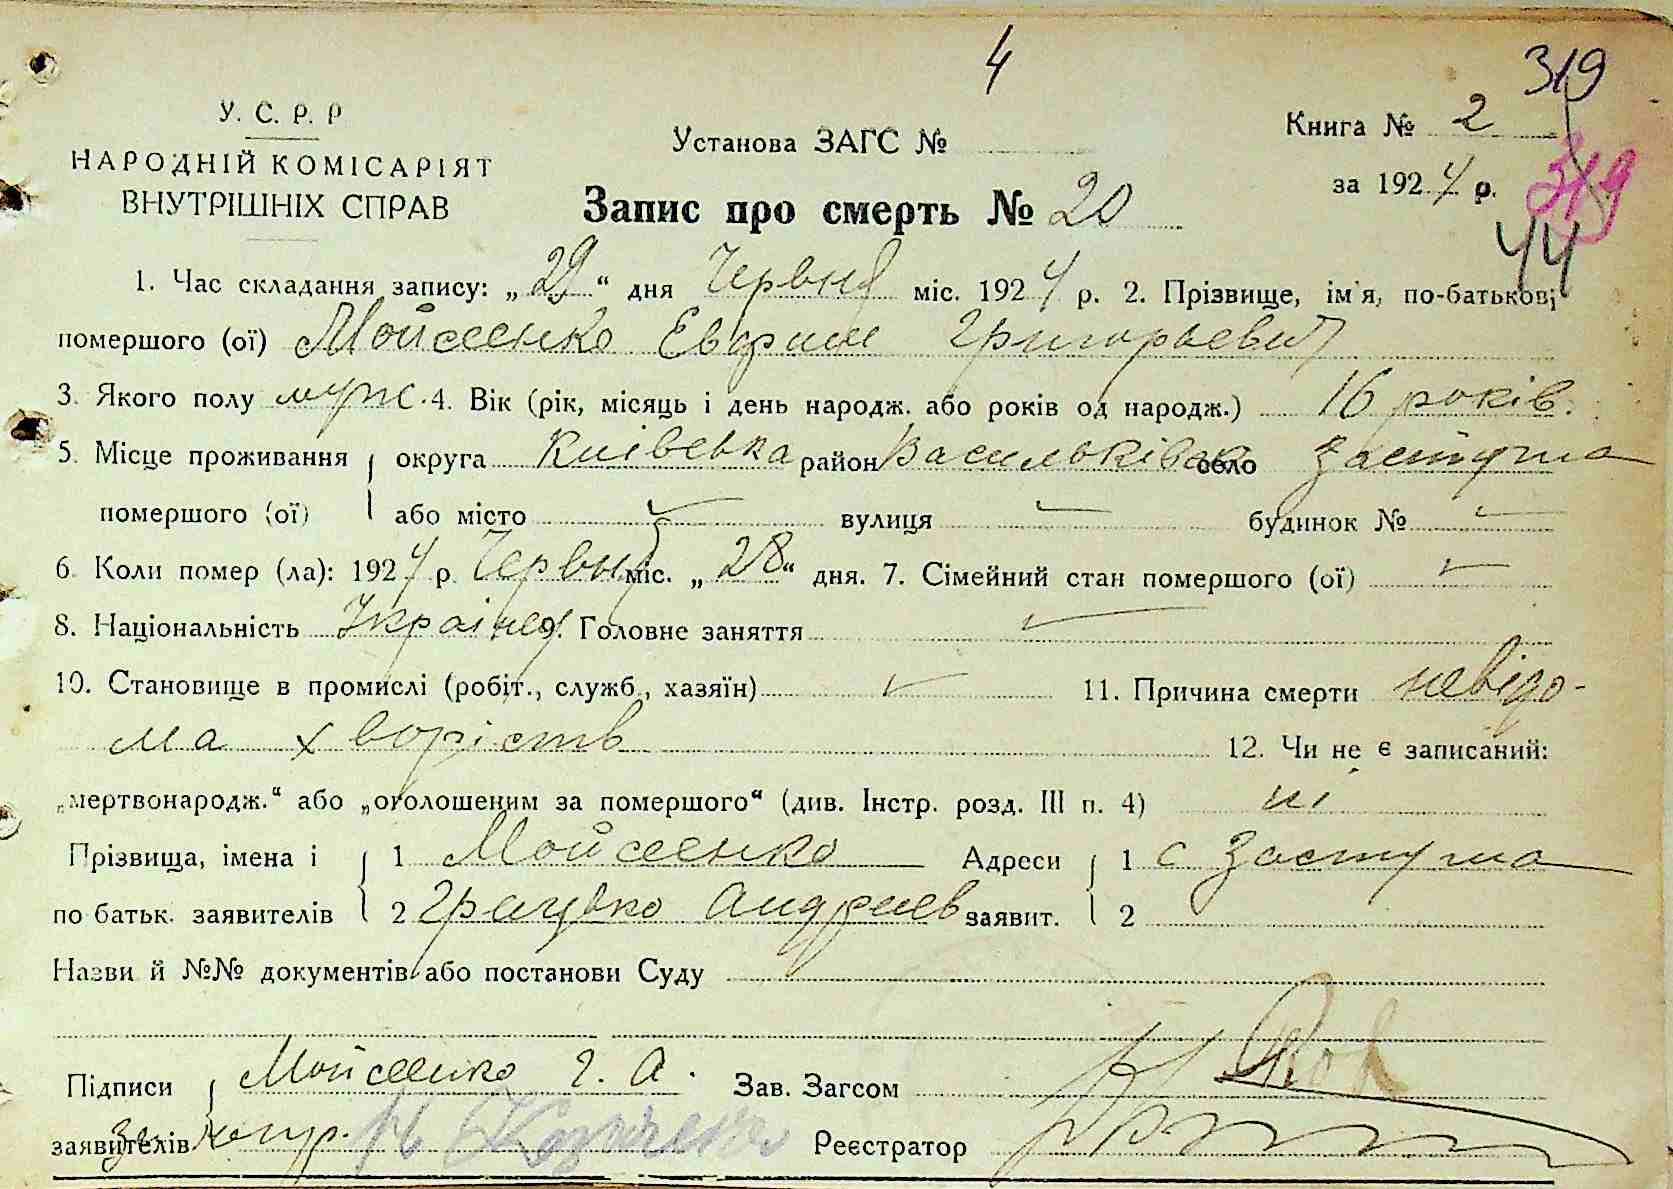 4
319
У. С. Р. Р
НАРОДНІЙ КОМІСАРІЯТ
ВНУТРІШНІХ СПРАВ
Установа ЗАГС №
Книга № 2
за 1924 р.
319
44
Запис про смерть № 20
1. Час складання запису: „29“ дня Червня міс. 1924 р. 2. Прізвище, ім'я, по-батькові
помершого (ої) Мойсеенко Григорьевич
3. Якого полу муж. 4. Вік (рік, місяць і день народж. або років од народж.) 16 років.
5. Місце проживання округа Київська район Васильківськ село Застугна
помершого (ої) або місто вулиця будинок №
6. Коли помер (ла): 1924 р. Червня міс. „28“ дня. 7. Сімейний стан помершого (ої)
8. Національність Українец 9. Головне заняття
10. Становище в промислі (робіт., служб., хазяїн) 11. Причина смерти невідо-
ма 12. Чи не є записаний:
„мертвонародж.“ або „оголошеним за помершого“ (див. Інстр. розд. III п. 4) ні
Прізвища, імена і 1 Мойсеенко Адреси 1 с Застугна
по батьк. заявителів 2 Грицько Андреев заявит. 2
Назви й №№ документів або постанови Суду
Підписи Мойсеенко Г. А. Зав. Загсом
заявителів Реєстратор